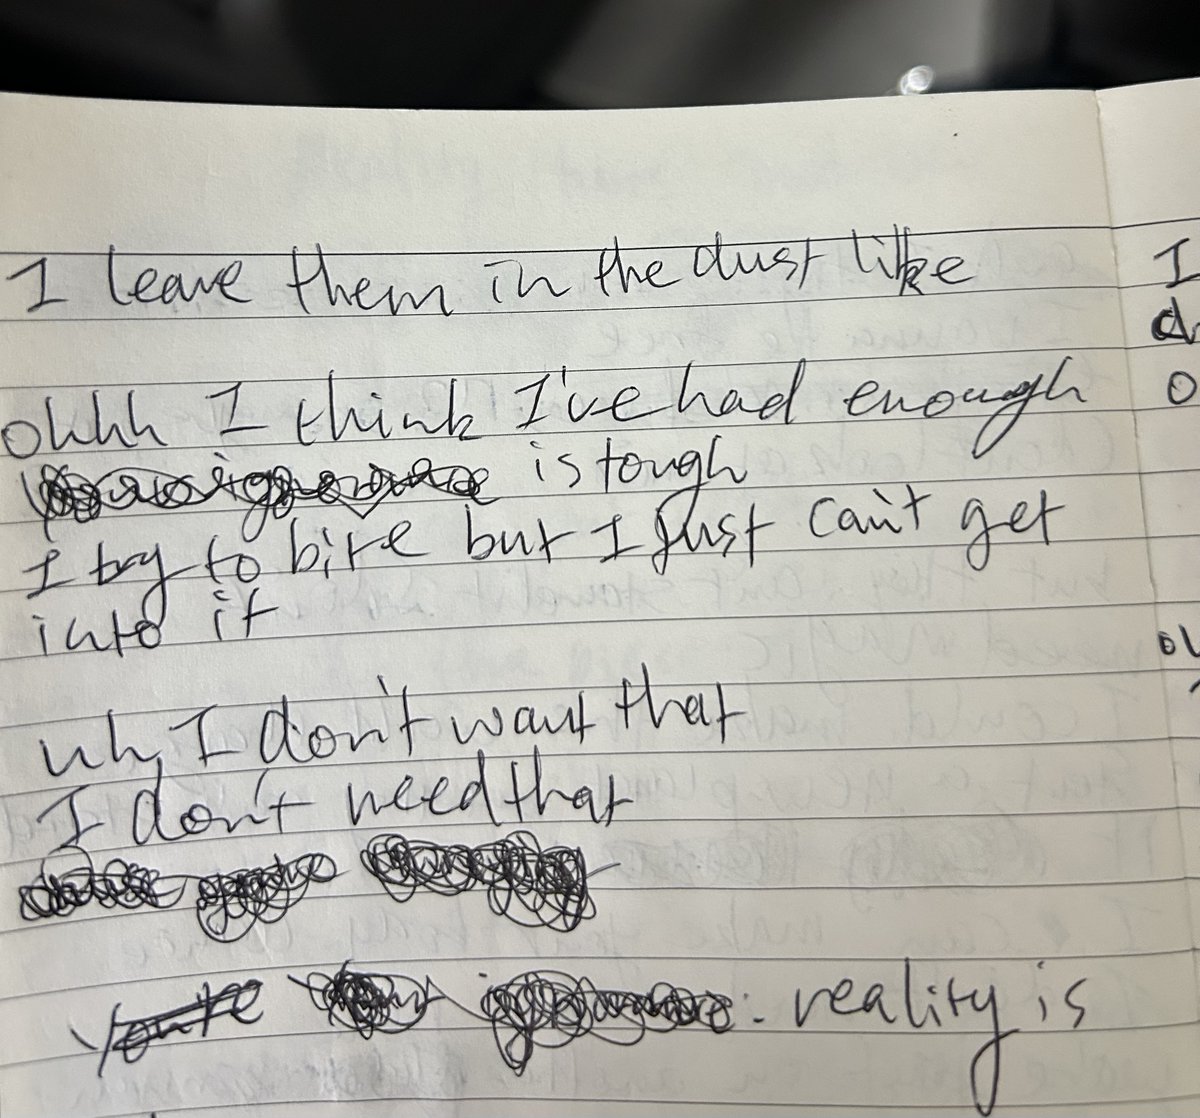 I leave them in the dust like
ohhh I think I've had enough
is tough
I try to bite but I just can't get
into it
uh, I don't want that
I don't need that
reality is